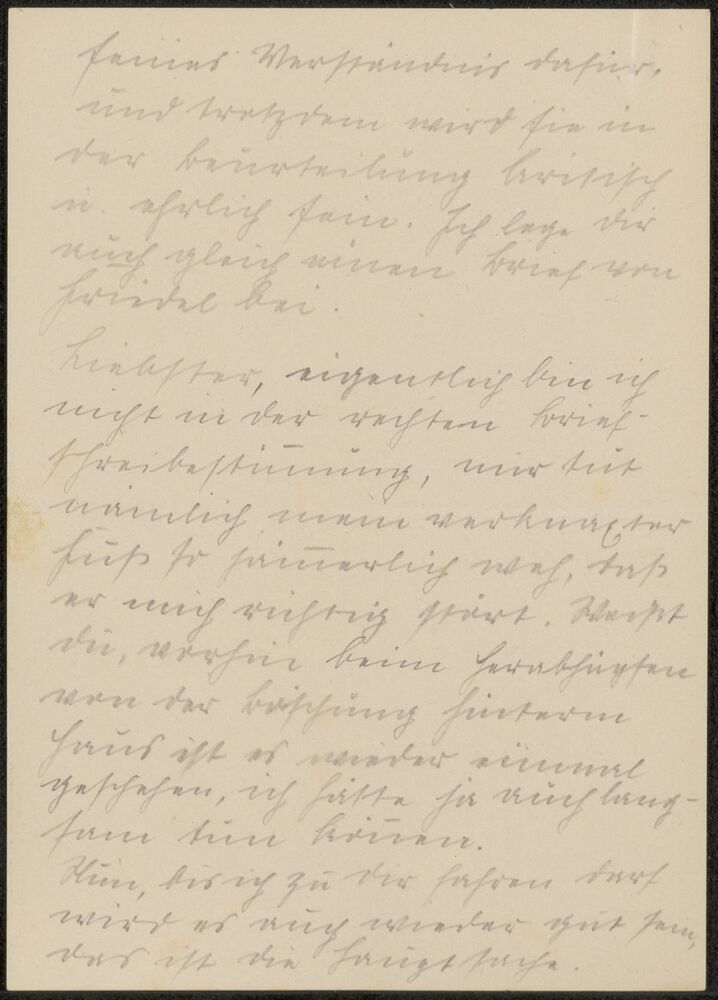 feines Verständnis dafür.
und trotzdem wird sie in
der Beurteilung kritisch
u. ehrlich sein. Ich lege Dir
auch gleich einen Brief von
Friedel bei.
Liebster, eigentlich bin ich
nicht in der rechten Brief-
schreibestimmung, mir tut
nämlich mein verknaxter
Fuß so jämmerlich weh, daß
er mich richtig stört. Weißt
du, vorhin beim Herabhüpfen
von der Böschung hinterm
Haus ist es wieder einmal
geschehen, ich hätte ja auch lang-
sam tun können.
Nun, bis ich zu Dir fahren darf
wird es auch wieder gut sein,
das ist die Hauptsache.